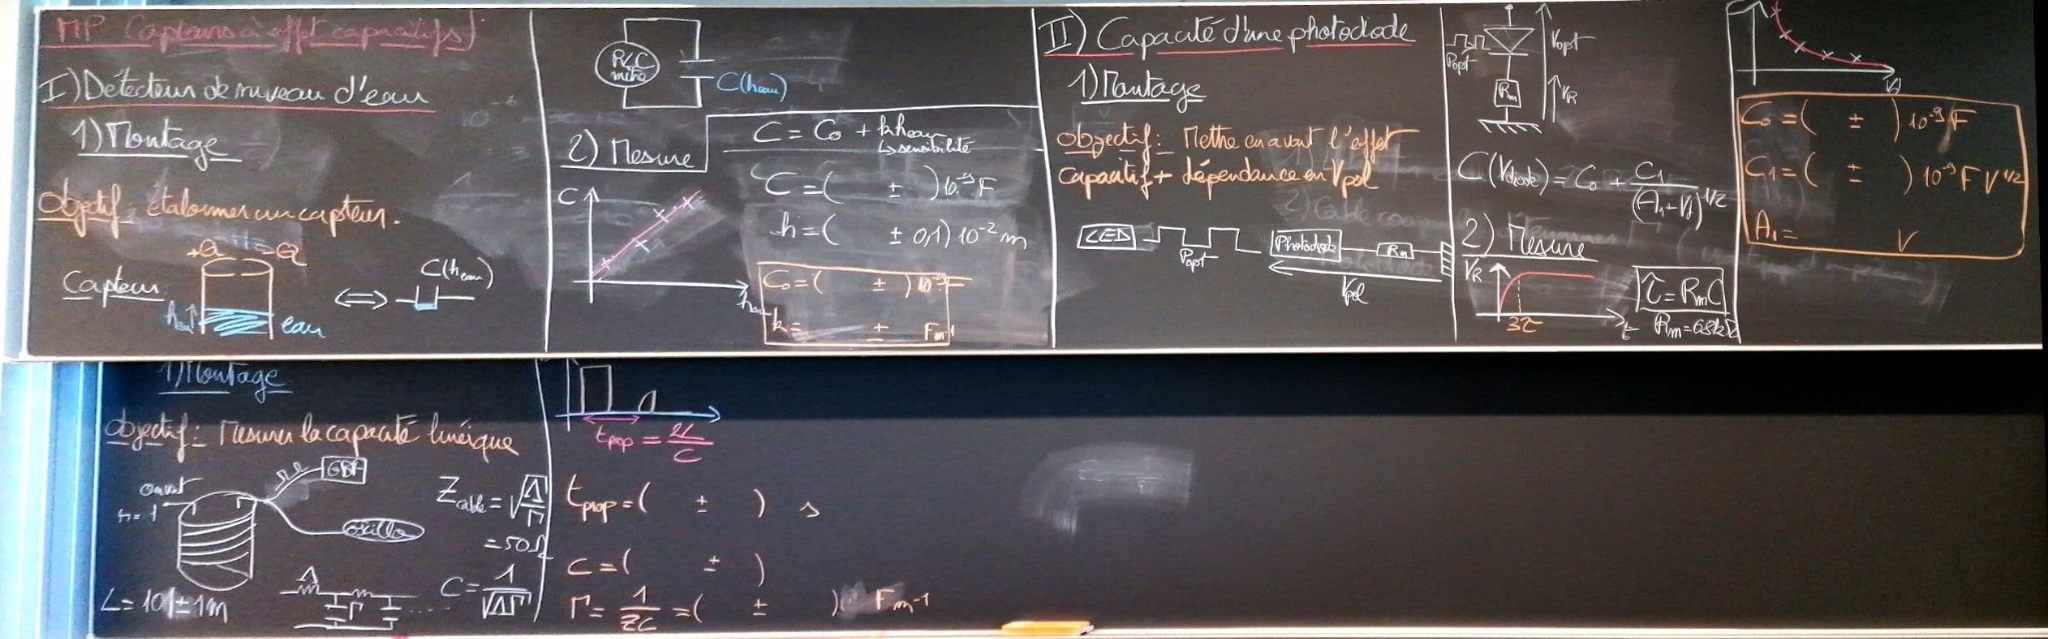 MP Capteurs à effet capacitifs
I) Détecteur de niveau d'eau
1) Montage
Objectif: étalonner un capteur.
+Q -Q
Capteur
h eau
eau
C(heau)
RLC
mètre
C(heau)
2) Mesure
C = C0 + k heau
↳ sensibilité
C
C = ( ± ) 10^-9 F
h = ( ± 0,1) 10^-2 m
C0 = ( ± ) 10^-9 F
k = ± Fm^-1
II) Capacité d'une photodiode
1) Montage
Objectif: Mettre en avant l'effet
capacitif + dépendance en Vpol
LED
Popt
Photodiode
Rm
Vpol
Popt
Vopt
Rm
VR
C(Vdiode) = C0 + C1/(A1+Vd)^1/2
2) Mesure
VR
3τ
t
τ = RmC
C0 = ( ± ) 10^-9 F
C1 = ( ± ) 10^-9 F V^1/2
A1 = V
1) Montage
Objectif: Mesurer la capacité linéique
GBF
oscillo
L = 101 ± 1m
Λ
Γ
Zcable = √(Λ/Γ)
= 50Ω
C = 1/√(ΛΓ)
tprop = 2L/C
tprop = ( ± ) s
C = ( ± )
Γ = 1/ZC = ( ± ) Fm^-1